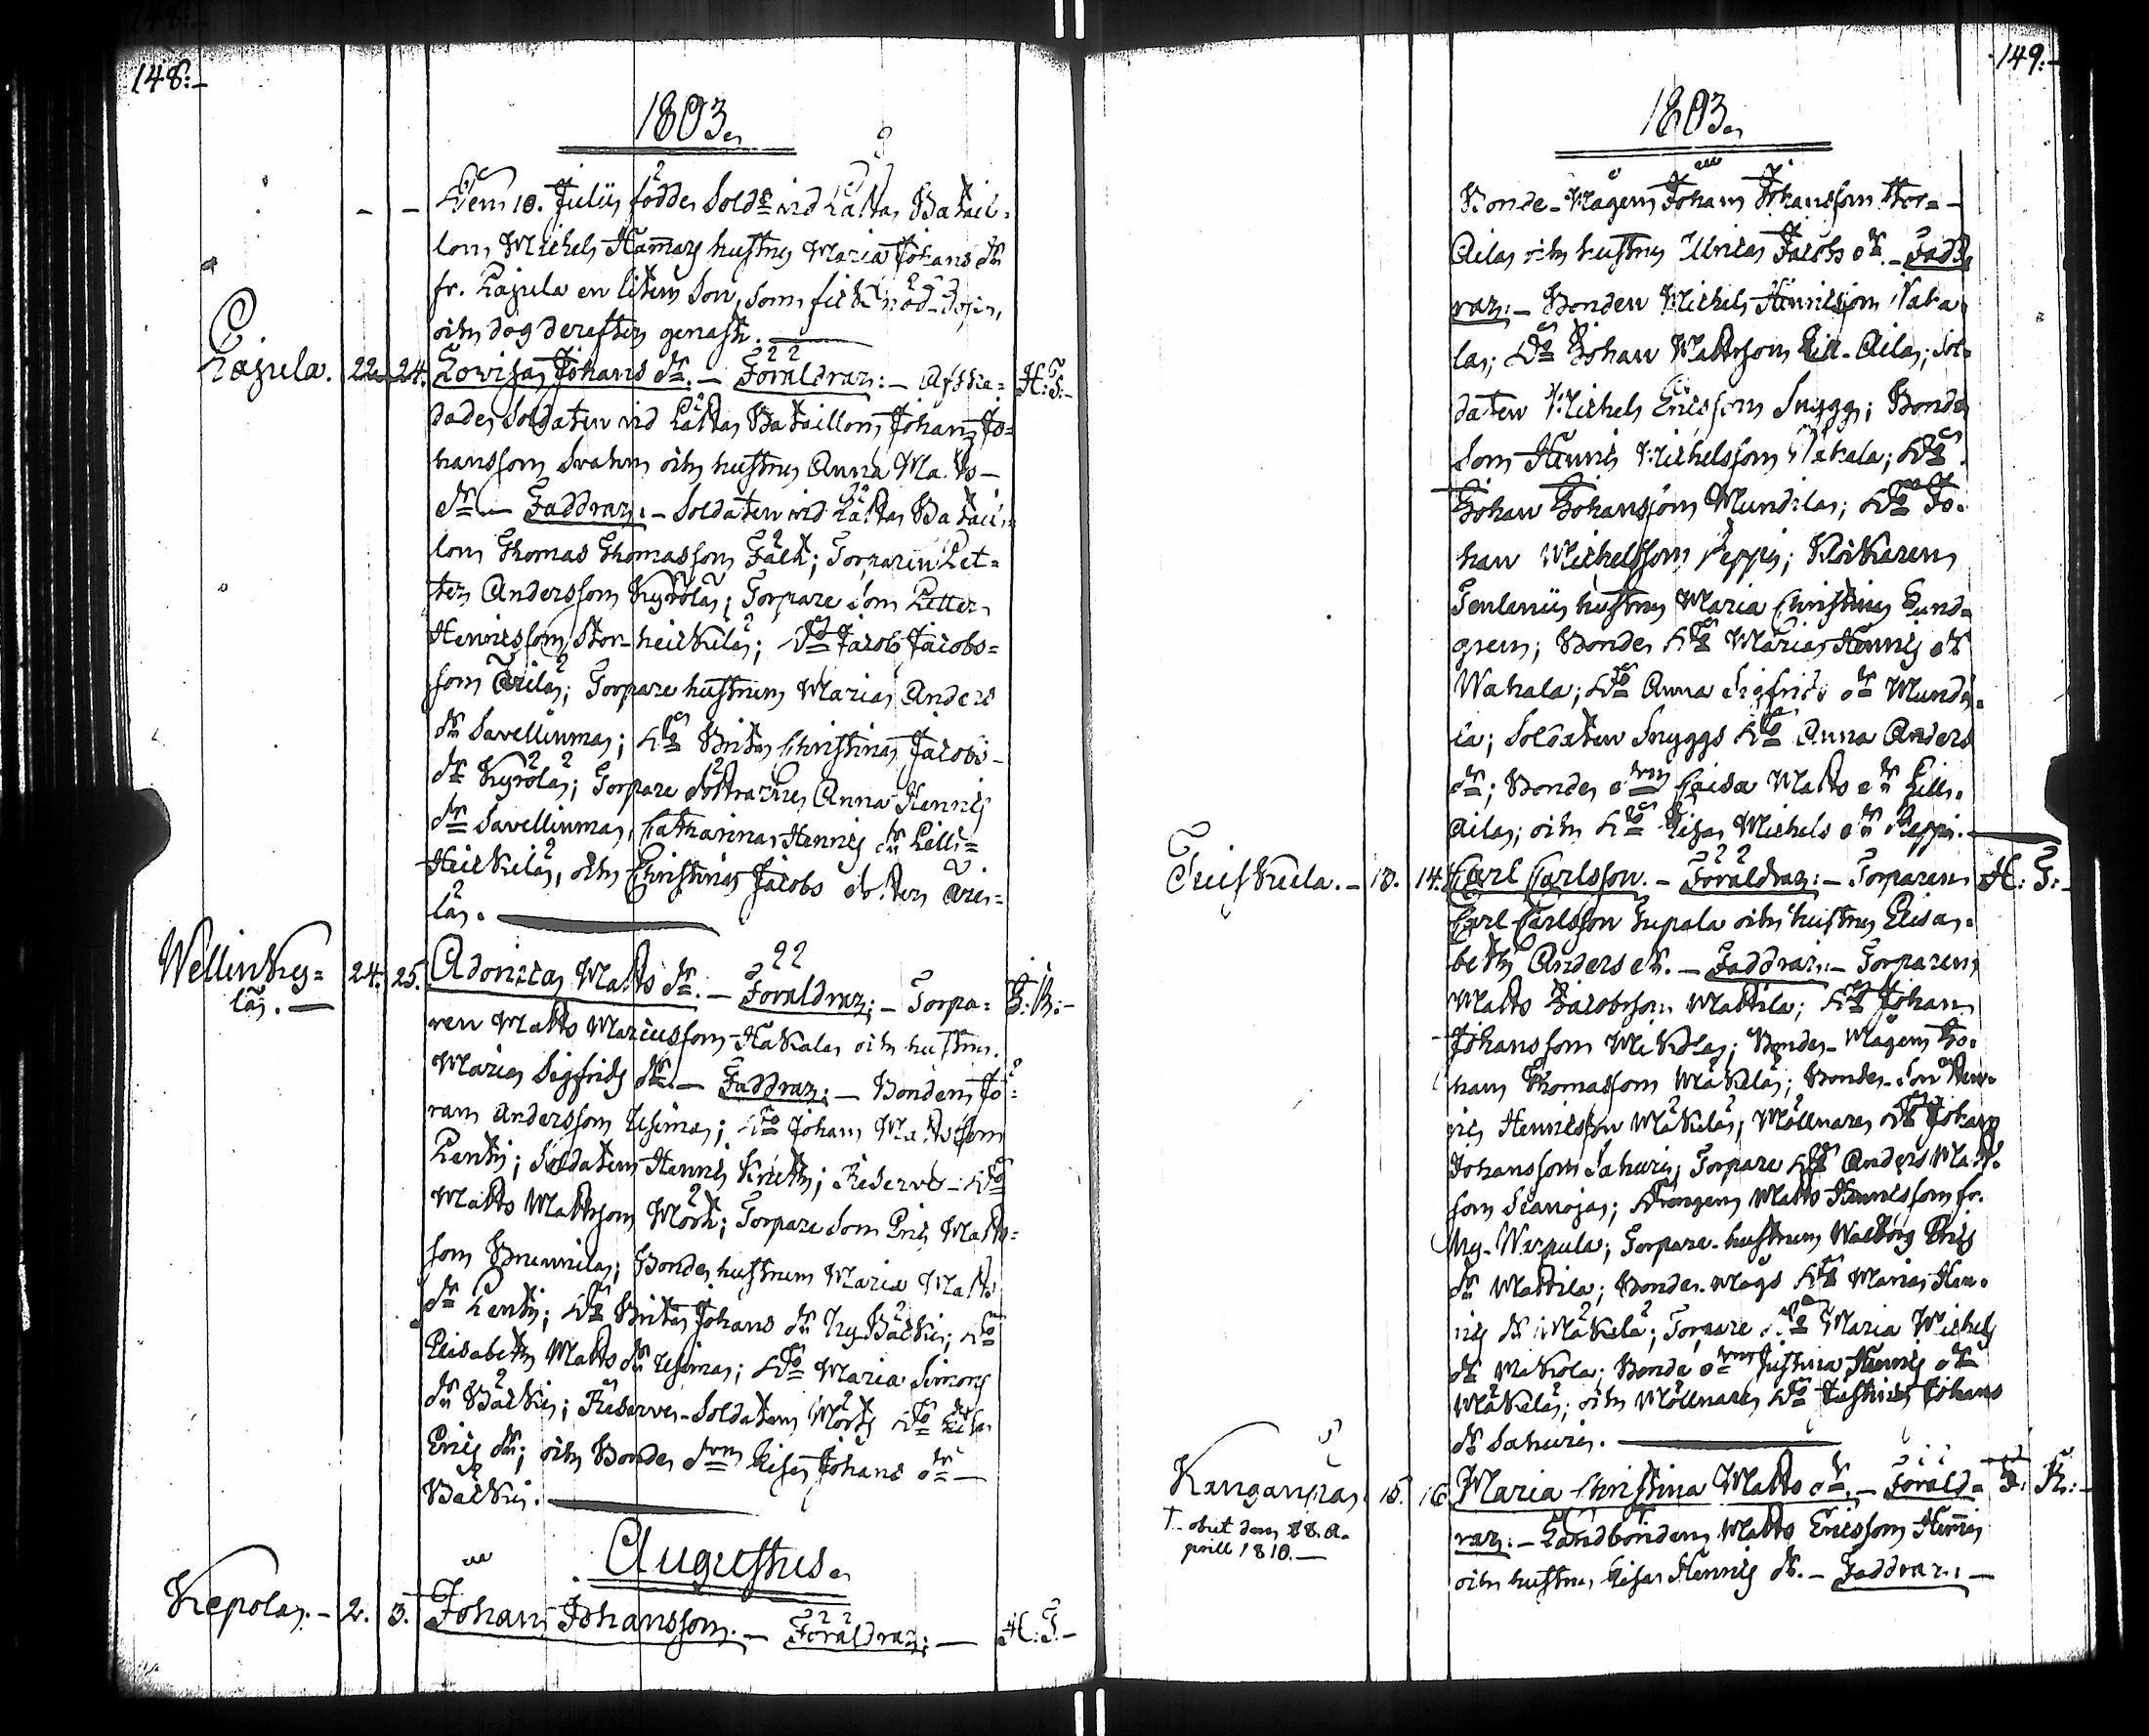 148:
1803.
Den 18. Julii födde Sold: vid Lätta Batail=
lon Michel Hammars hustru Maria Johans dr
fr. Lajula en liten Son, som fick nöd-dop,
och dog derefter genast.
Lajula. 22. 24. Lovisa Johans dr. — Föräldrar: — Afske= H: T:-
dade Soldaten vid Lätta Bataillon Johan Jo=
hansson Svahn och hustru Anna Matts
dr — Faddrar: — Soldaten vid Lätta Batail=
lon Thomas Thomasson Fält; Torparen Pet=
ter Andersson Kyrölä; Torpare Son Petter
Henricsson Stor-heickilä; Do Jacob Jacobs=
son Arilä; Torpare hustrun Maria Anders
dr Savellinma; Do Brita Christina Jacobs
dr Kyrölä; Torpare döttrarne Anna Henrics
dr Savellinma, Catharina Henrics dr Lill=
Heickilä, och Christina Jacobs dotter Ari=
lä.
Wellinky=
lä. 24. 25. Adonica Matts dr. — Föräldrar: — Torpa= T: R:-
ren Matts Marcusson Hakala och hustru
Maria Sigfrids dr. — Faddrar: — Bonden Jö=
ran Andersson Uhima; Do Johan Mattsson
Pentti; Soldaten Henric Knekt; Reserve-Do
Matts Mattsson Mört; Torpare Son Eric Matts=
son Brunnila; Bonde hustrun Maria Matts
dr Pentti; Do Brita Johans dr Ny Bäcki; Do
Elisabeth Matts dr Uhima; Do Maria Simons
dr Bäcki; Reserve-Soldaten Mörts Do Lisa
Erics dr; och Bonde drn Lisa Johans dr
Bäcki.
Augustus.
Kepola. - 2. 3. Johan Johansson. — Föräldrar: — H: T:-
149:
1803.
Bonde-Mågen Johan Johansson Stor-
Aila och hustru Ulrica Jacobs dr. — Fadd=
rar: — Bonden Michel Henricsson Waka=
la; Do Johan Mattsson Lill-Aila; Sol=
daten Michel Ericsson Snygg; Bonde
Son Henric Michelsson Wakala; Do
Johan Johansson Mundila; Do Jo=
han Michelsson Seppi; Klockaren
Tenlenii hustru Maria Christina Lund=
gren; Bonde Do Maria Henrics dr
Wakala; Do Anna Sigfrids dr Mundi=
la; Soldaten Snyggs Do Anna Anders
dr; Bonde drn Caisa Matts dr Lill-
Aila; och Do Lisa Michels dr Seppi.
Tuiskula. - 13. 14. Carl Carlsson. — Föräldrar: — Torparen H: T:-
Carl Carlsson Jupala och hustru Elisa=
beth Anders dr. — Faddrar: — Torparen
Matts Jacobsson Mattila; Do Johan
Johansson Mikola; Bonde-Mågen Jo=
han Thomasson Mäkilä; Bonde-Son Hen=
ric Henricsson Mäkilä; Möllnare Do Johan
Johansson Sahuri; Torpare Do Anders Matts=
son Seanoja; Drängen Matts Henricsson fr.
Ny-Werpula; Torpare-hustrun Walborg Erics
dr Mattila; Bonde-Mågs Do Maria Hen=
rics dr Mäkilä; Torpare Do Maria Michels
dr Mikola; Bonde drn Justina Henrics dr
Mäkilä; och Möllnare Do Justina Johans
dr Sahuri.
Kanganpä. 15. 16. Maria Christina Matts dr. — Föräld= T: R:-
† obiit den 18. A=
prill 1810. —
rar: — Landbonden Matts Ericsson Heimi
och hustru Lisa Henrics dr. — Faddrar: —